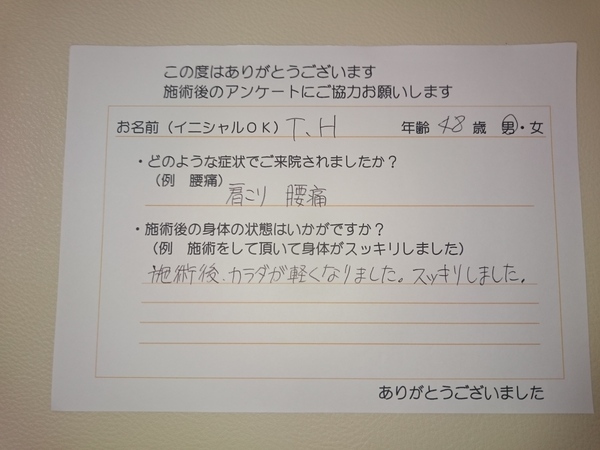 この度はありがとうございます
施術後のアンケートにご協力お願いします
お名前（イニシャルOK） T、H 年齢 48 歳 男・女
・どのような症状でご来院されましたか？
（例 腰痛）
肩こり 腰痛
・施術後の身体の状態はいかがですか？
（例 施術をして頂いて身体がスッキリしました）
施術後、カラダが軽くなりました。スッキリしました。
ありがとうございました